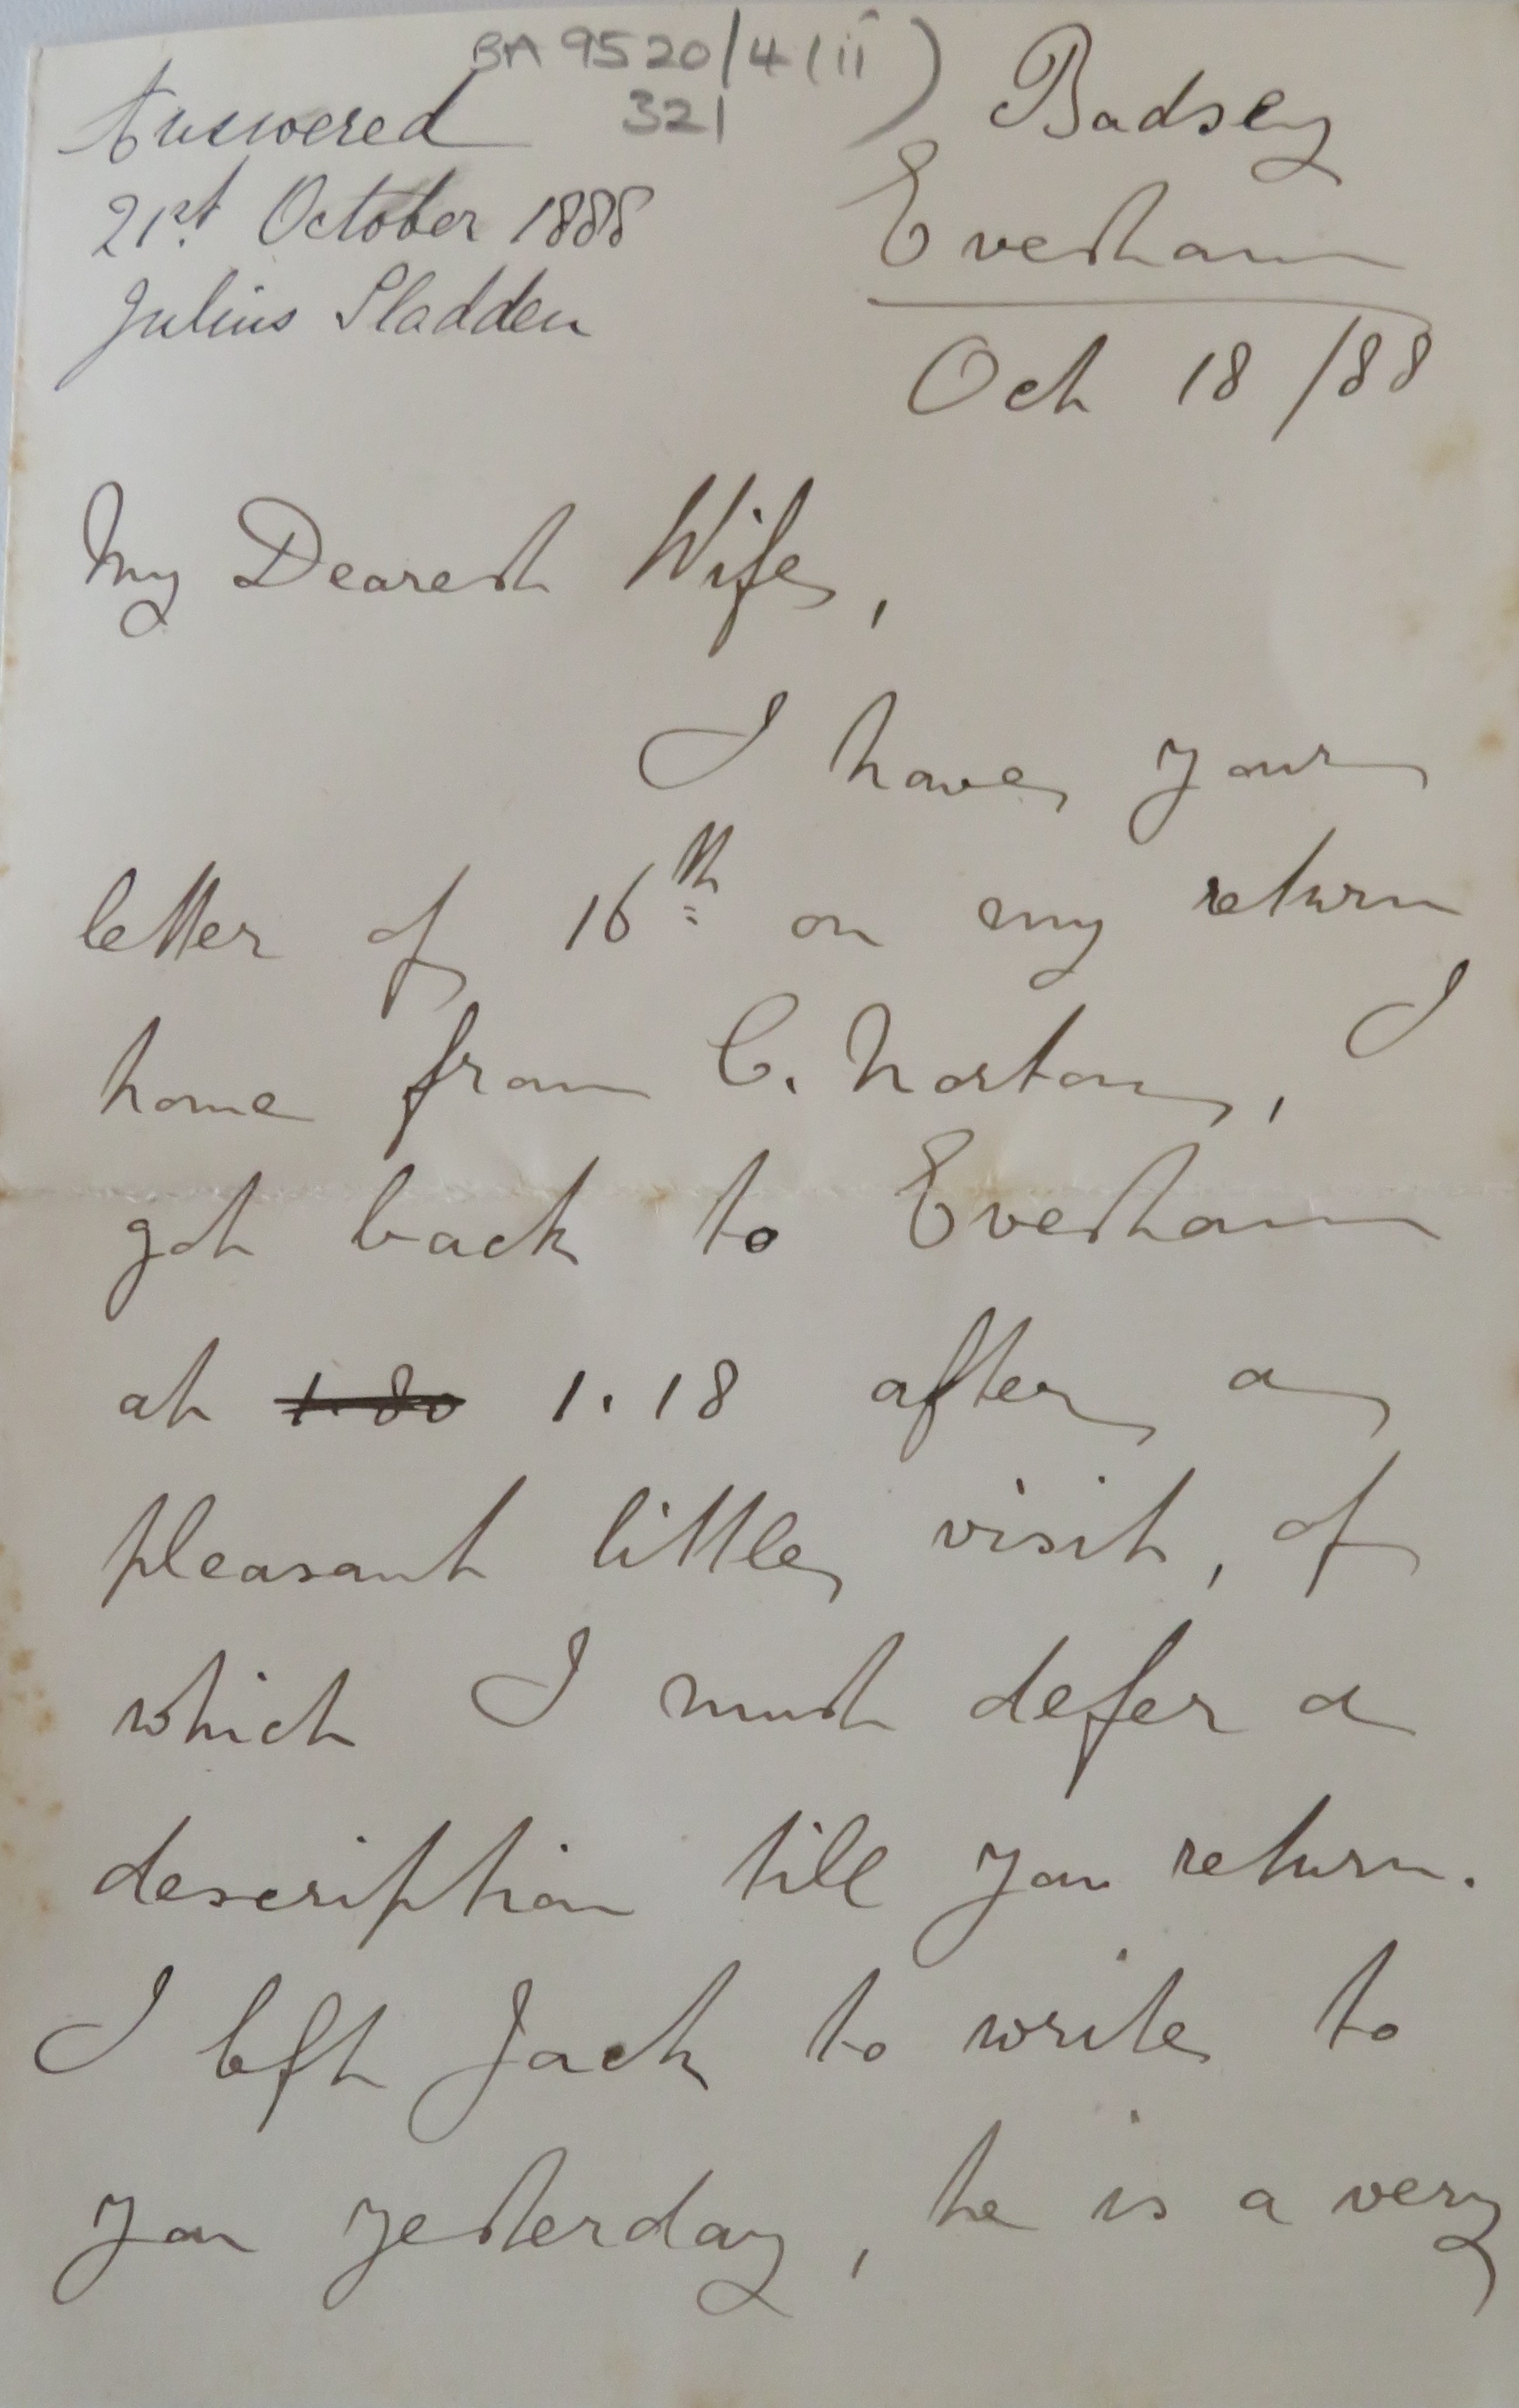 BA 9520/4(ii)
321
Answered
21st October 1888
Julius Sladden
Badsey
Evesham
Oct 18/88
My Dearest Wife,
I have your
letter of 16th on my return
home from C. Norton, I
got back to Evesham
at 1.30 1.18 after a
pleasant little visit, of
which I must defer a
description till you return.
I left Jack to write to
you yesterday, he is a very